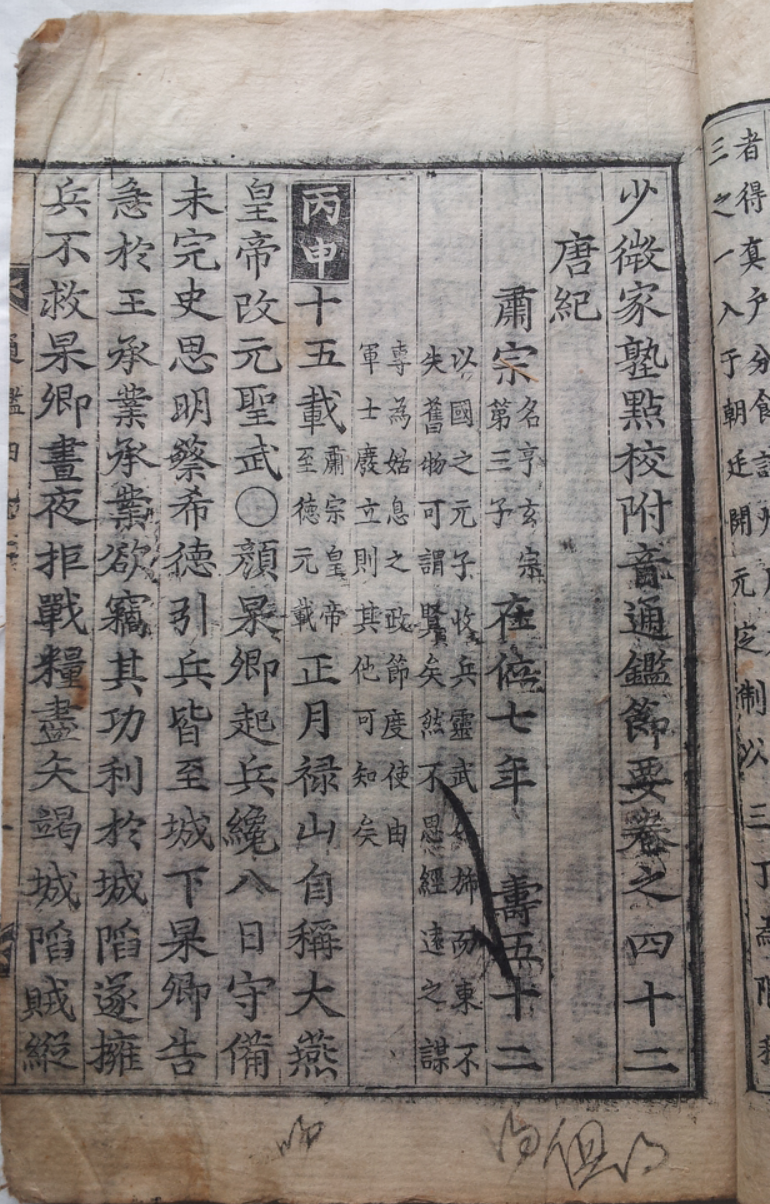 者得真戶分
三之一入于朝廷開元定制以三丁為
少微家塾點校附音通鑑節要卷之四十二
唐紀
肅宗名亨玄宗第三子在位七年 壽五十二
以國之元子收兵靈武 而東不
失舊物可謂賢矣然不思經遠之謀
專為姑息之政節度使由
軍士廢立則其他可知矣
丙申十五載肅宗皇帝至德元載正月祿山自稱大燕
皇帝改元聖武○顏杲卿起兵纔八日守備
未完史思明蔡希德引兵皆至城下杲卿告
急於王承業承業欲竊其功利於城陷遂擁
兵不救杲卿晝夜拒戰糧盡矢竭城陷賊縱
通鑑四